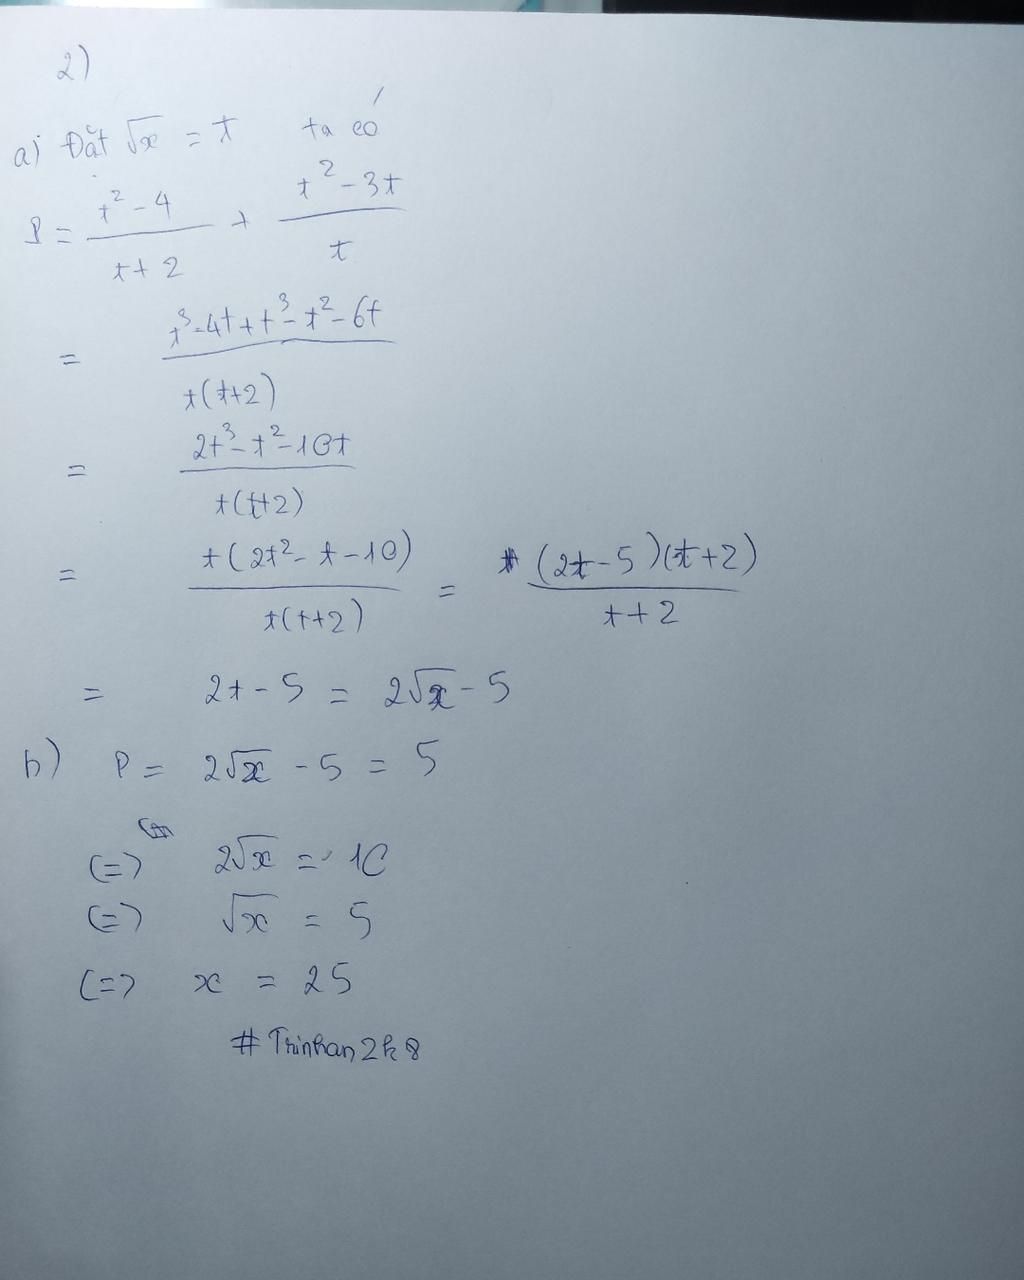 2)
a) Đặt √x = t ta có
P = (t² - 4)/(t + 2) + (t² - 3t)/t
= (t³ - 4t + t³ - t² - 6t)/(t(t+2))
= (2t³ - t² - 10t)/(t(t+2))
= (t(2t² - t - 10))/(t(t+2)) = ((2t - 5)(t + 2))/(t + 2)
= 2t - 5 = 2√x - 5
b) P = 2√x - 5 = 5
(=) 2√x = 10
(=) √x = 5
(=> x = 25
#Trinhan2k8